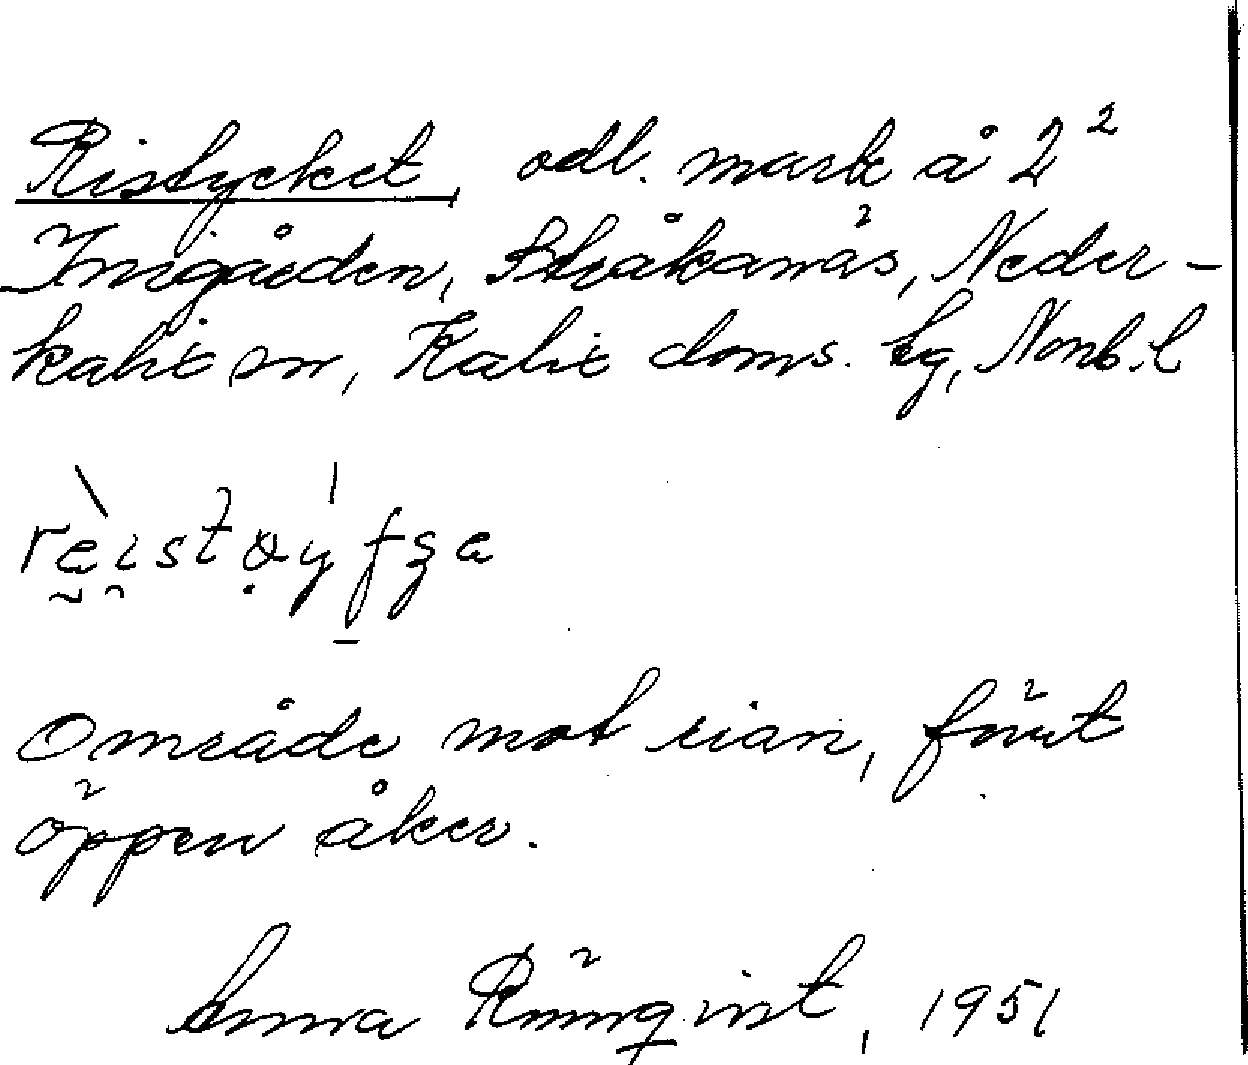 Ristycket, odl. mark å 2²
Innigården, Stråkanäs, Neder-
kalix sn, Kalix doms. tg, Norrb. l
Område mot sian, förut
öppen åker.
Anna Rönnqvist, 1951